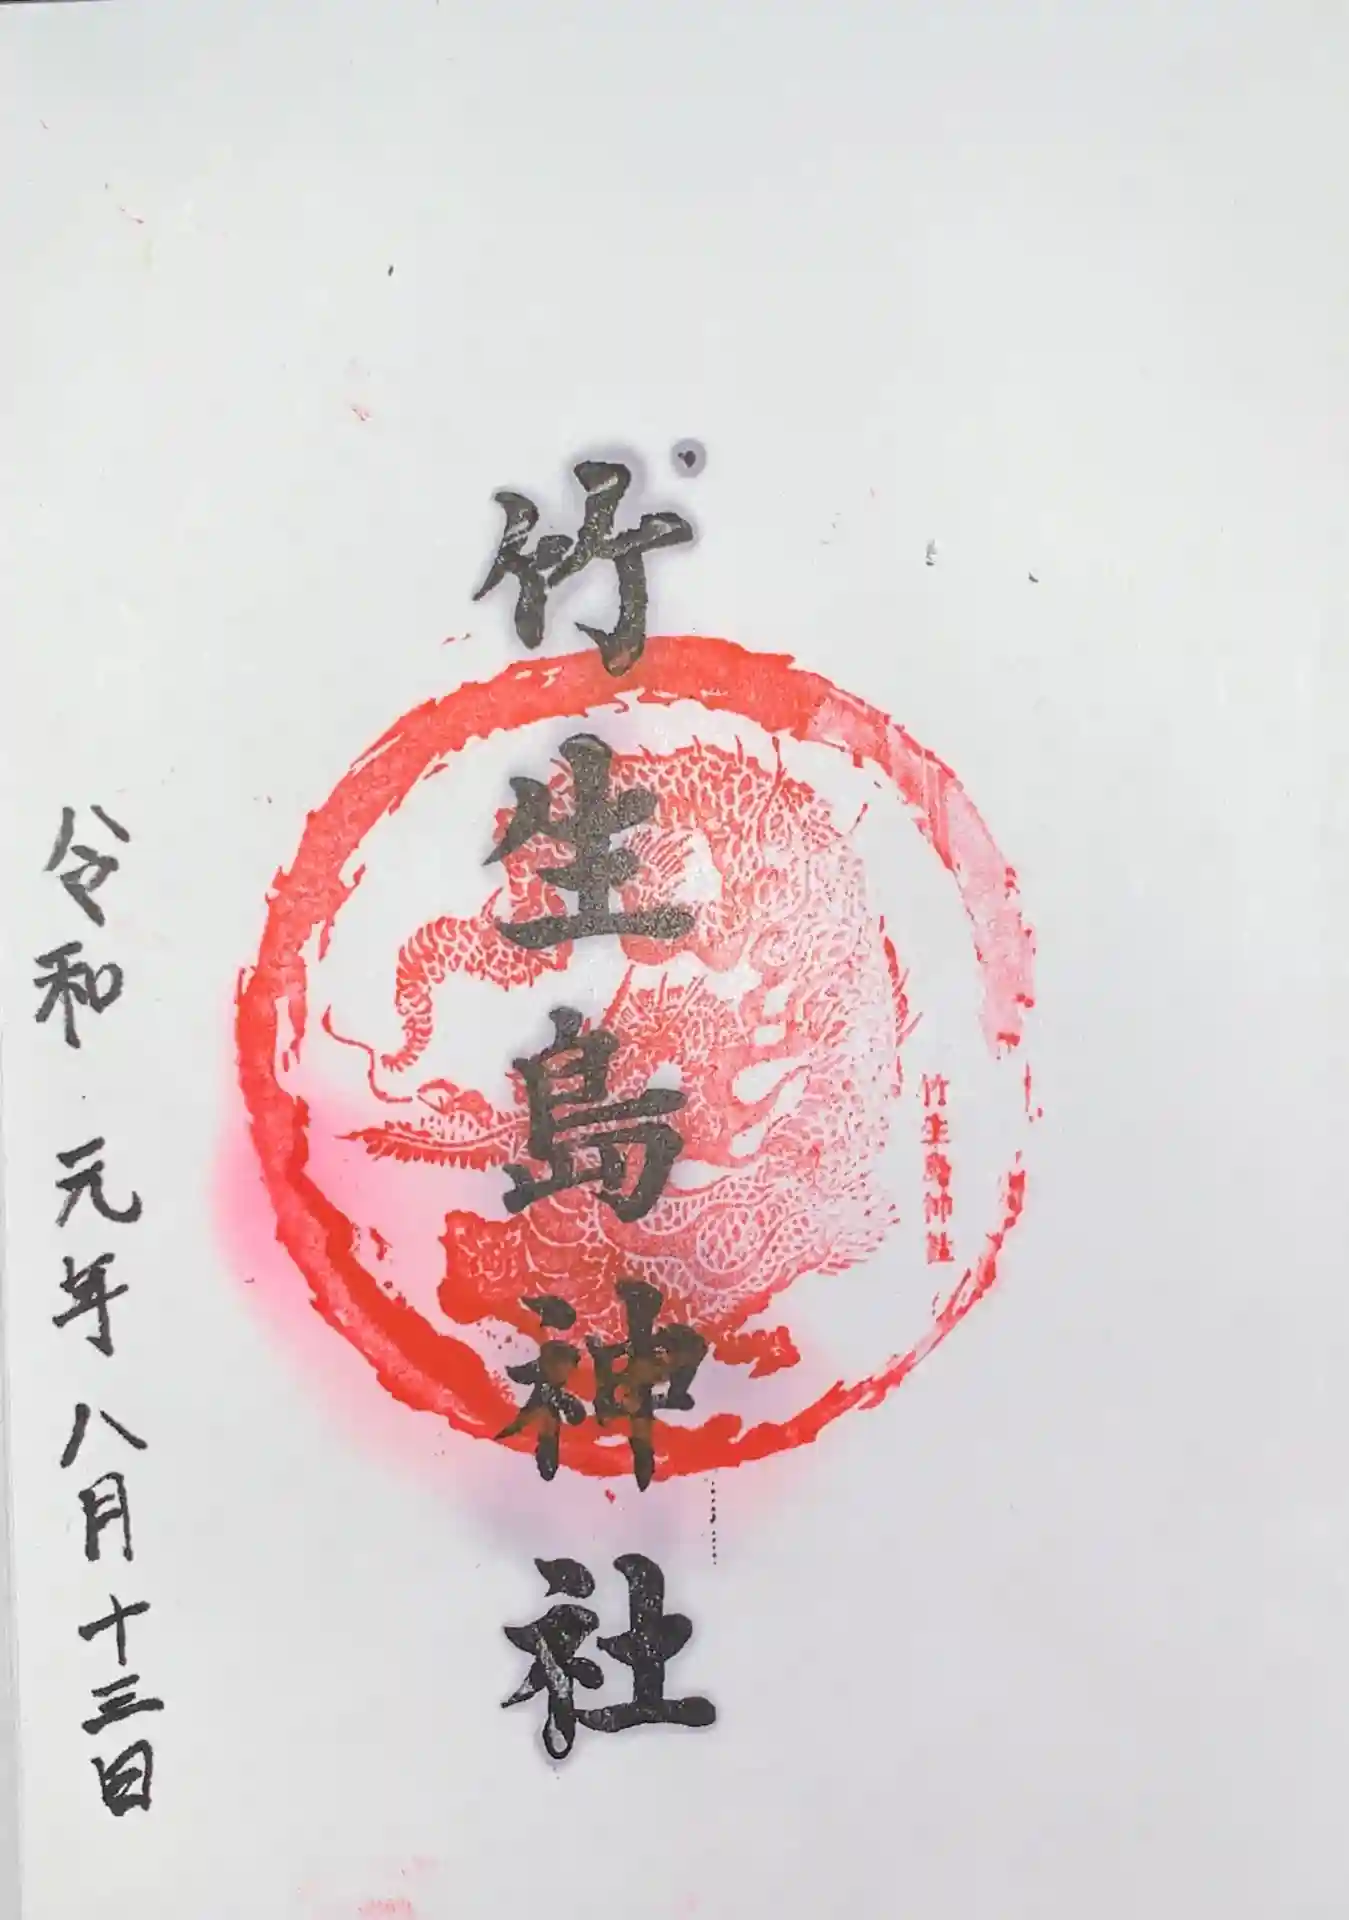 竹生島神社
竹生島神社
令和元年八月十三日